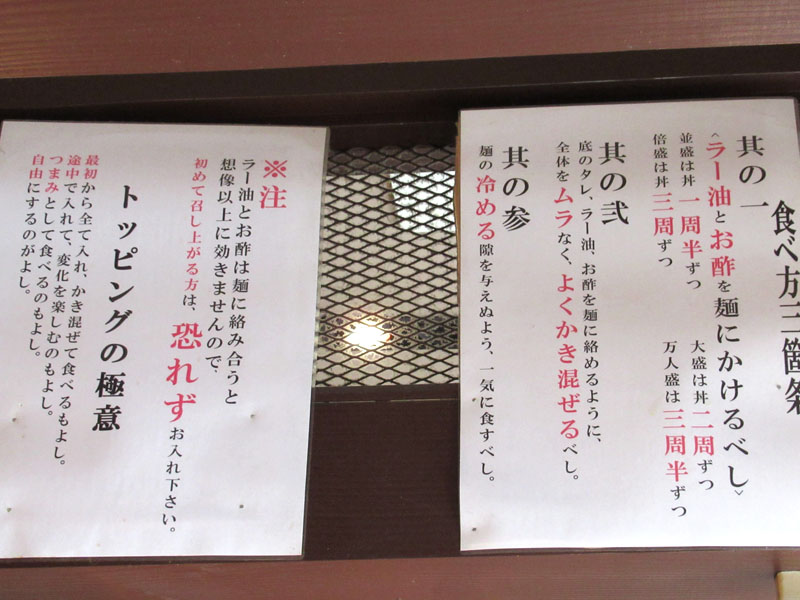 食べ方三箇条
其の一
〈ラー油とお酢を麺にかけるべし〉
並盛は丼一周半ずつ
大盛は丼二周ずつ
倍盛は丼三周ずつ
万人盛は三周半ずつ
其の弐
底のタレ、ラー油、お酢を麺に絡めるように、
全体をムラなく、よくかき混ぜるべし。
其の参
麺の冷める隙を与えぬよう、一気に食すべし。
※注
ラー油とお酢は麺に絡み合うと
想像以上に効きませんので、
初めて召し上がる方は、恐れずお入れ下さい。
トッピングの極意
最初から全て入れ、かき混ぜて食べるもよし。
途中で入れて、変化を楽しむのもよし。
つまみとして食べるのもよし。
自由にするのがよし。